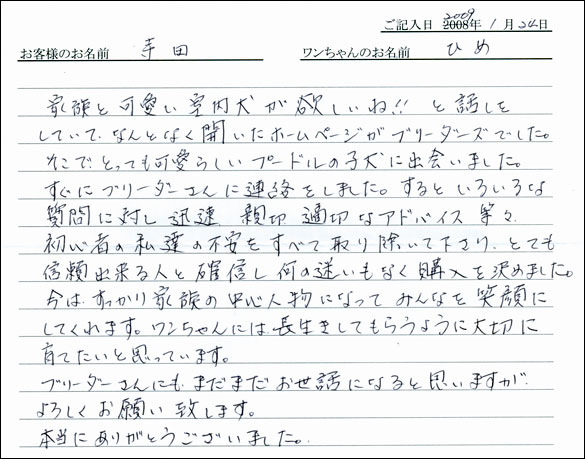 ご記入日 2009 2008年 1月24日
お客様のお名前 寺田 ワンちゃんのお名前 ひめ
家族と可愛い室内犬が欲しいね!! と話しを
していて、なんとなく開いたホームページがブリーダーズでした。
そこで、とっても可愛らしいプードルの子犬に出会いました。
すぐにブリーダーさんに連絡をしました。するといろいろな
質問に対し 迅速 親切 適切なアドバイス 等々、
初心者の私達の不安をすべて取り除いて下さり、とても
信頼出来る人と確信し何の迷いもなく購入を決めました。
今は、すっかり家族の中心人物になって みんなを笑顔に
してくれます。ワンちゃんには、長生きしてもらうように大切に
育てたいと思っています。
ブリーダーさんにも、まだまだお世話になると思いますが
よろしくお願い致します。
本当にありがとうございました。